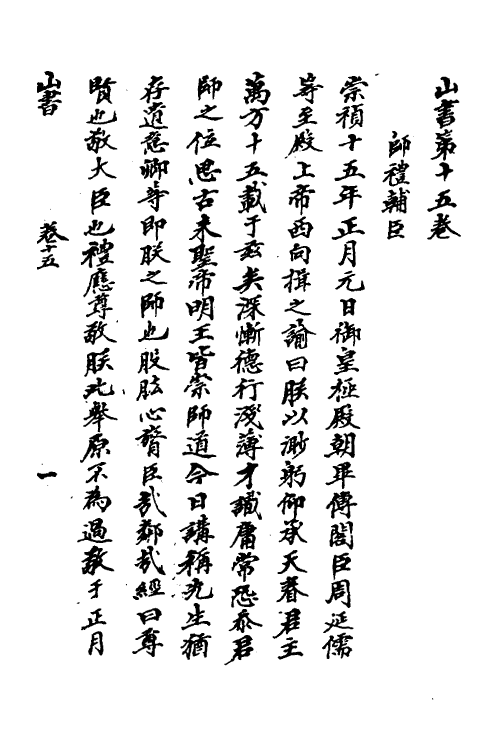 山書第十五卷
師禮輔臣
崇禎十五年正月元日御皇極殿朝畢傳閣臣周延儒
等至殿上帝西向揖之諭曰朕以渺躬仰承天眷君主
萬方十五載于茲矣深慚德行淺薄才識庸常恐忝君
師之位思古來聖帝明王皆崇師道今日講稱先生猶
存遺意卿等即朕之師也股肱心膂臣哉鄰哉經曰尊
賢也敬大臣也禮應尊敬朕此舉原不為過敬于正月
山書
卷十五
一